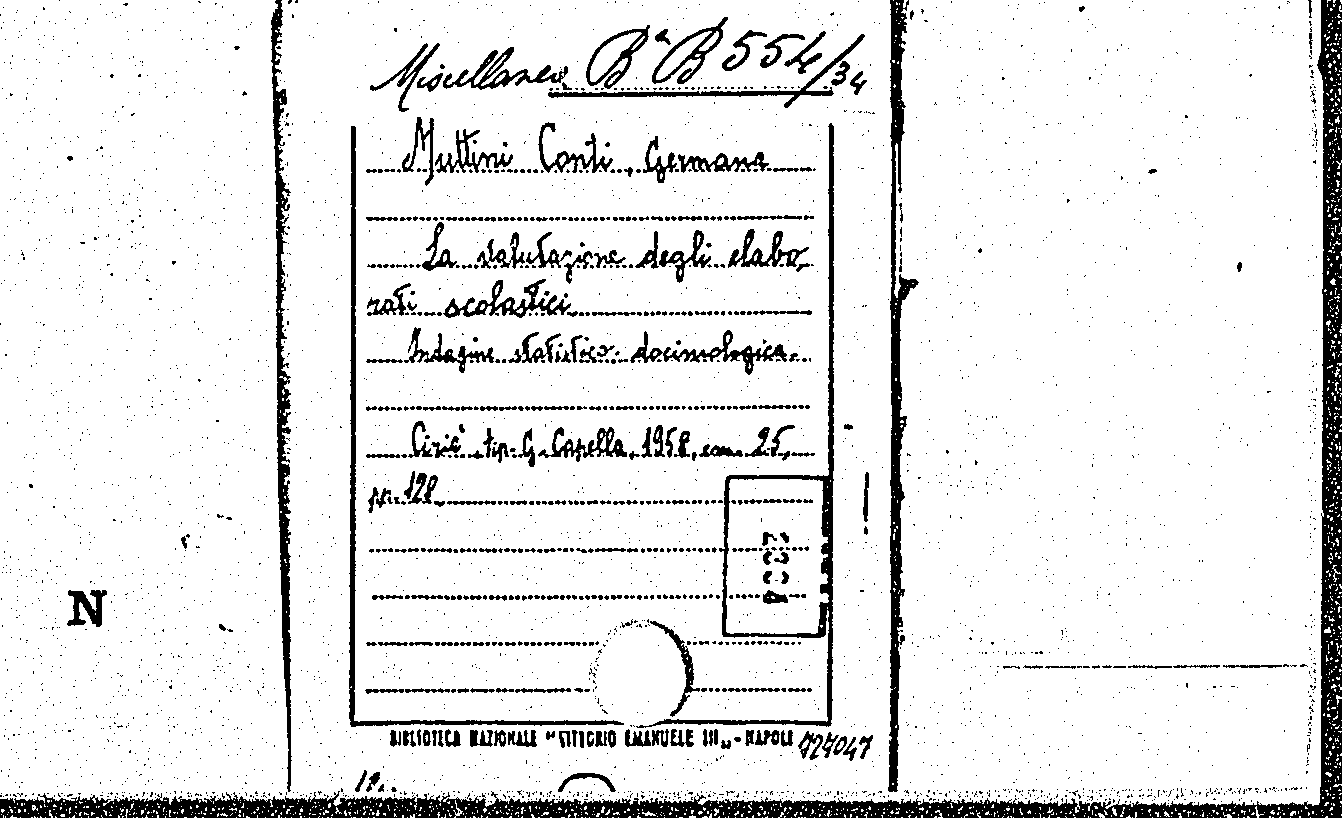 Miscellanea Bª B 554/34
Muttini Conti, Germana
La valutazione degli elabo-
rati scolastici.
Indagine statistico-docimologica.
Ciriè, tip. G. Capella, 1958, cm. 25,
pp. 128.
N
BIBLIOTECA NAZIONALE "VITTORIO EMANUELE III„ - NAPOLI 727047